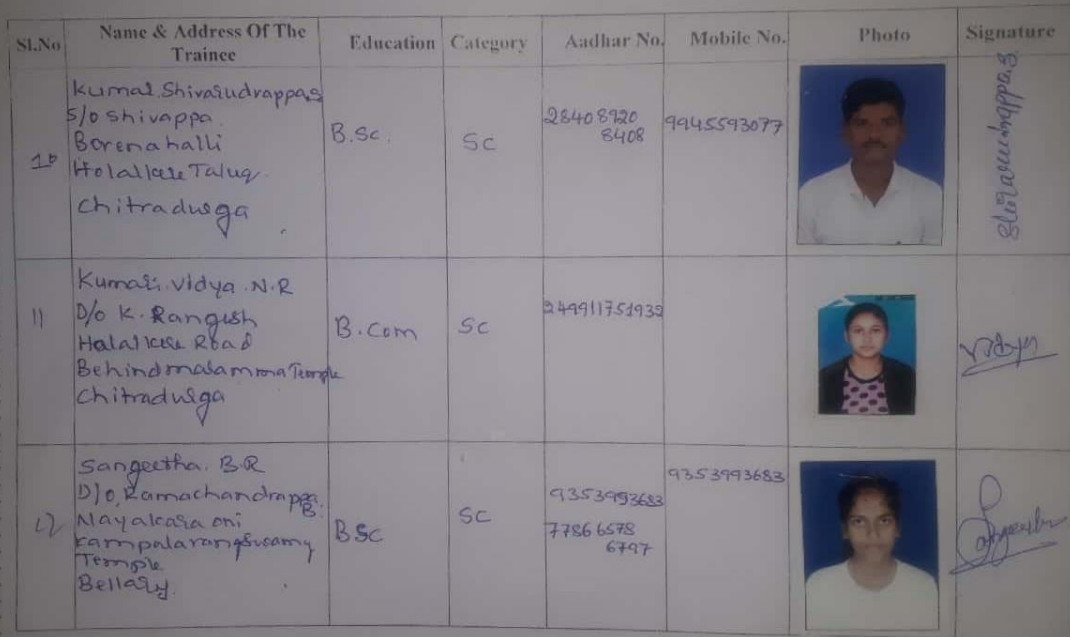 Sl.No Name & Address Of The Trainee Education Category Aadhar No. Mobile No. Photo Signature
10
Kumar.Shivarudrappa.S
S/o Shivappa.
Borenahalli
Holalkere Taluq.
Chitradurga
B.Sc.
SC
28408920
8408
9945593077
11
Kumari. Vidya .N.R
D/o K. Rangesh
Halalkere Road
Behind malamma Temple
Chitradurga
B.Com
SC
249911751939
Vidya
12
Sangeetha. B.R
D/o, Ramachandrappa.
B.
Nayakara oni
Kampalarangswamy
Temple
Bellary.
BSc
SC
9353993683
77866578
6797
9353993683